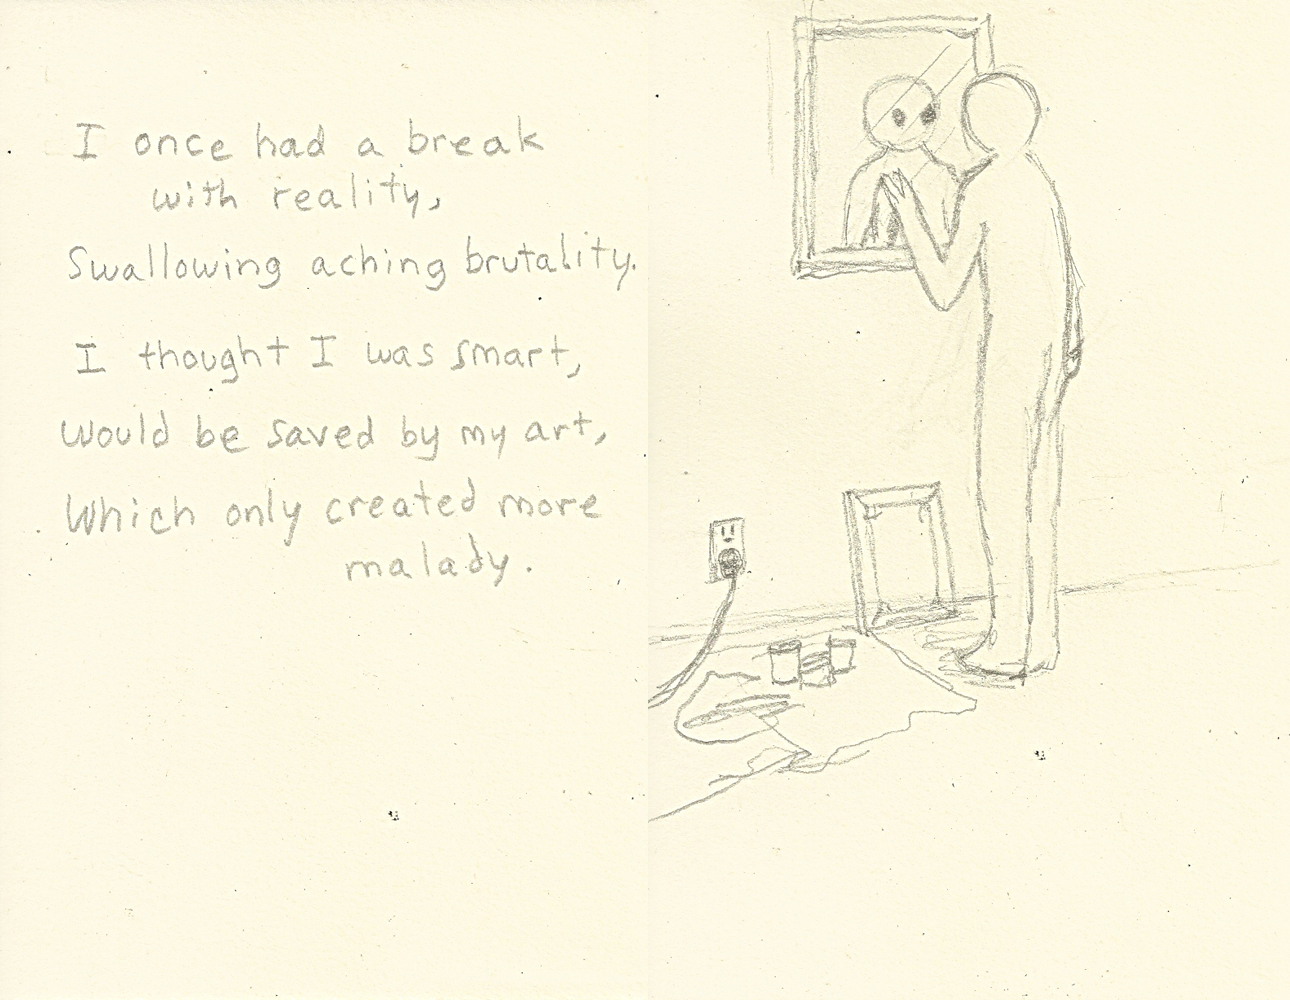 I once had a break
with reality,
Swallowing aching brutality.
I thought I was smart,
Would be saved by my art,
Which only created more
malady.